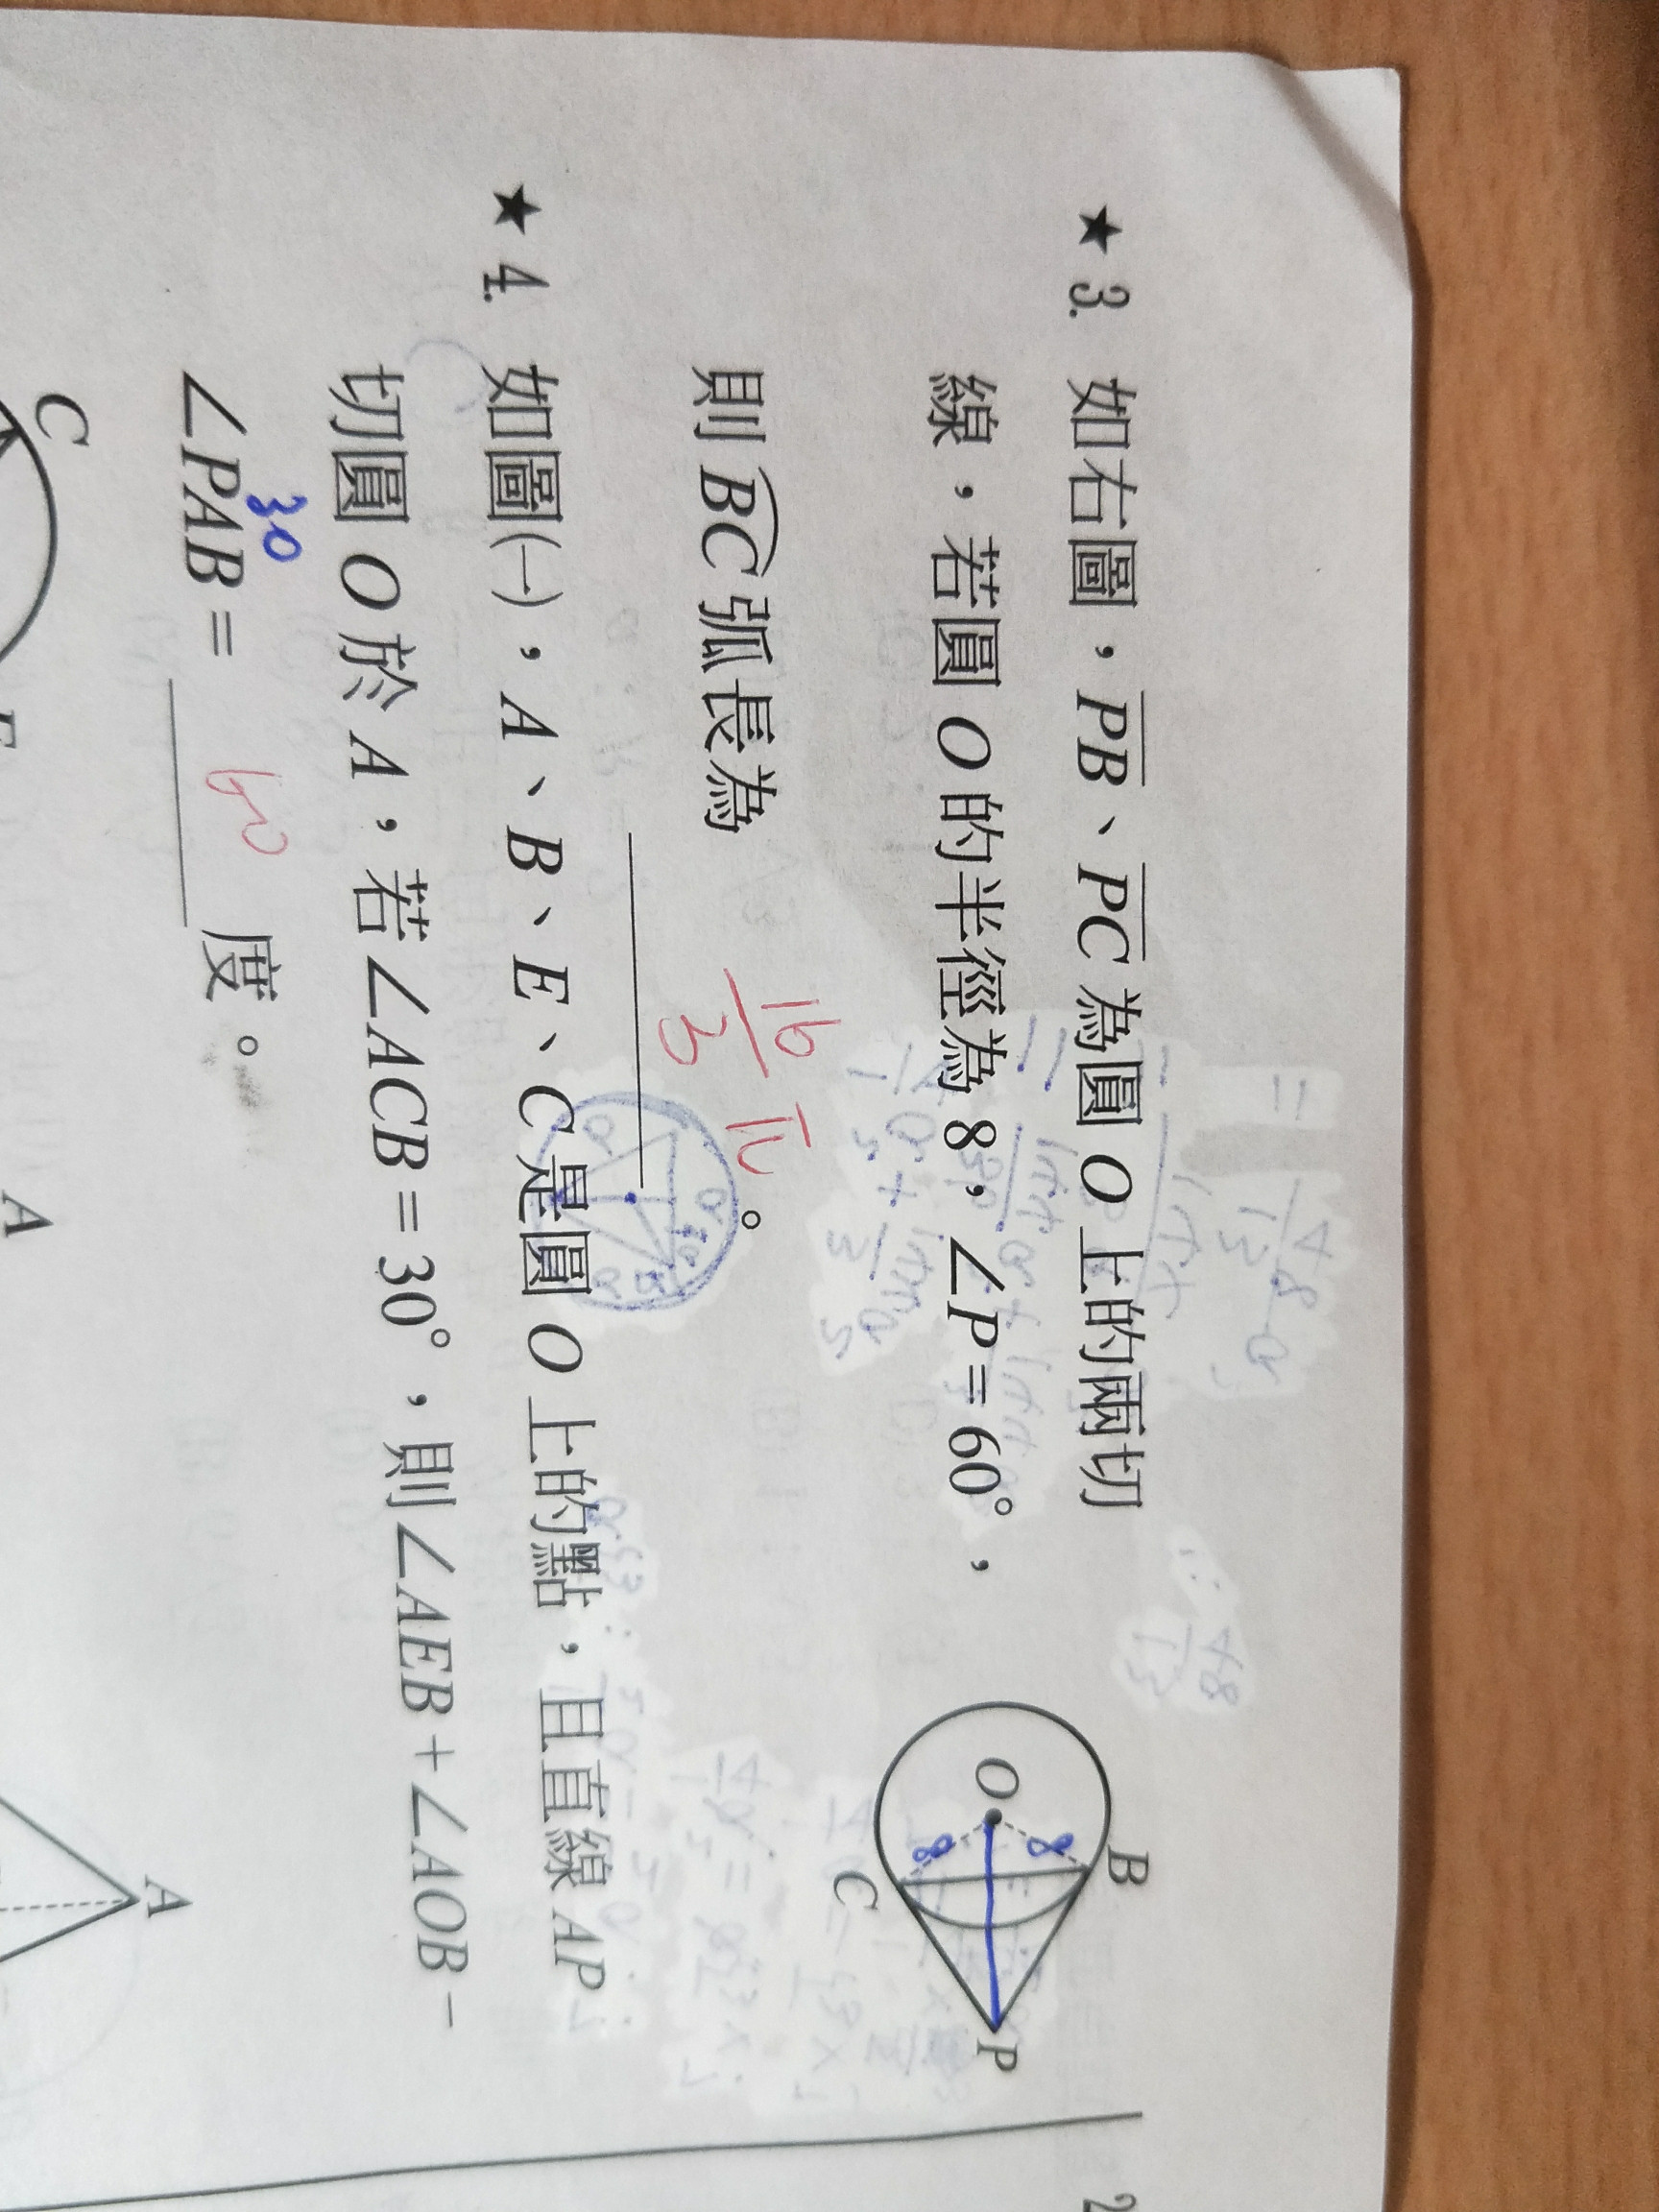 ★ 3. 如右圖，PB、PC 為圓 O 上的兩切
線，若圓 O 的半徑為 8，∠P = 60°，
則 BC 弧長為 16/3 π 。
O 8 8 B C P
★ 4. 如圖(一)，A、B、E、C 是圓 O 上的點，且直線 AP
切圓 O 於 A，若∠ACB = 30°，則∠AEB + ∠AOB −
30
∠PAB = 60 度。
C
A
A
2